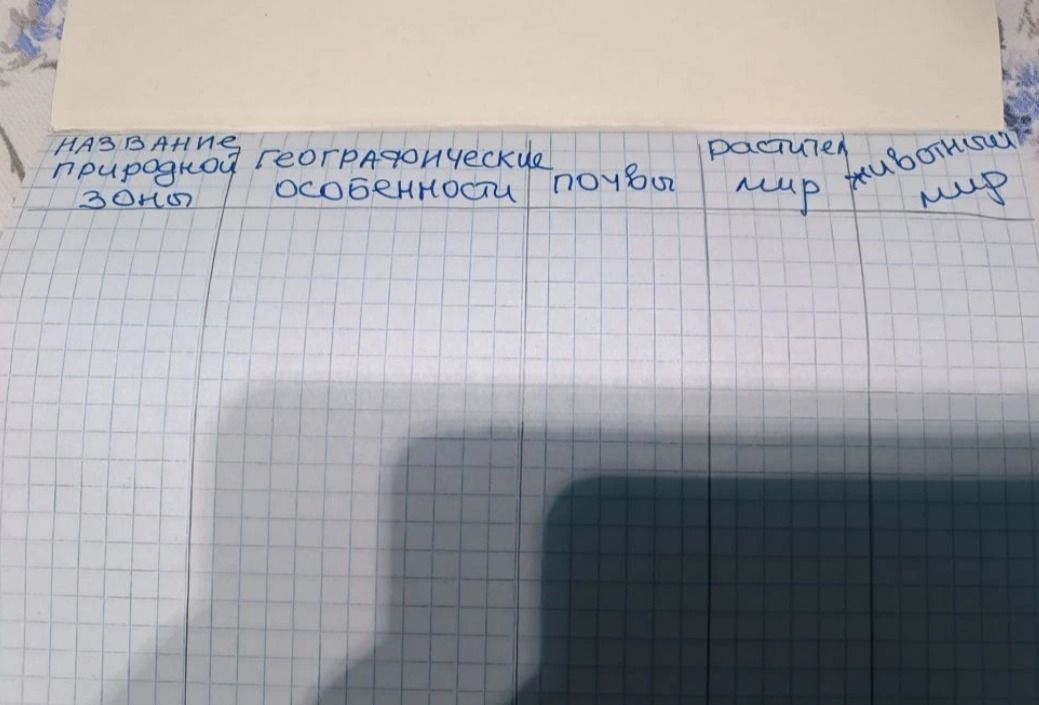 НАЗВАНИЕ
природной
зоны
географические
особенности
почвы
растител
мир
животный
мир